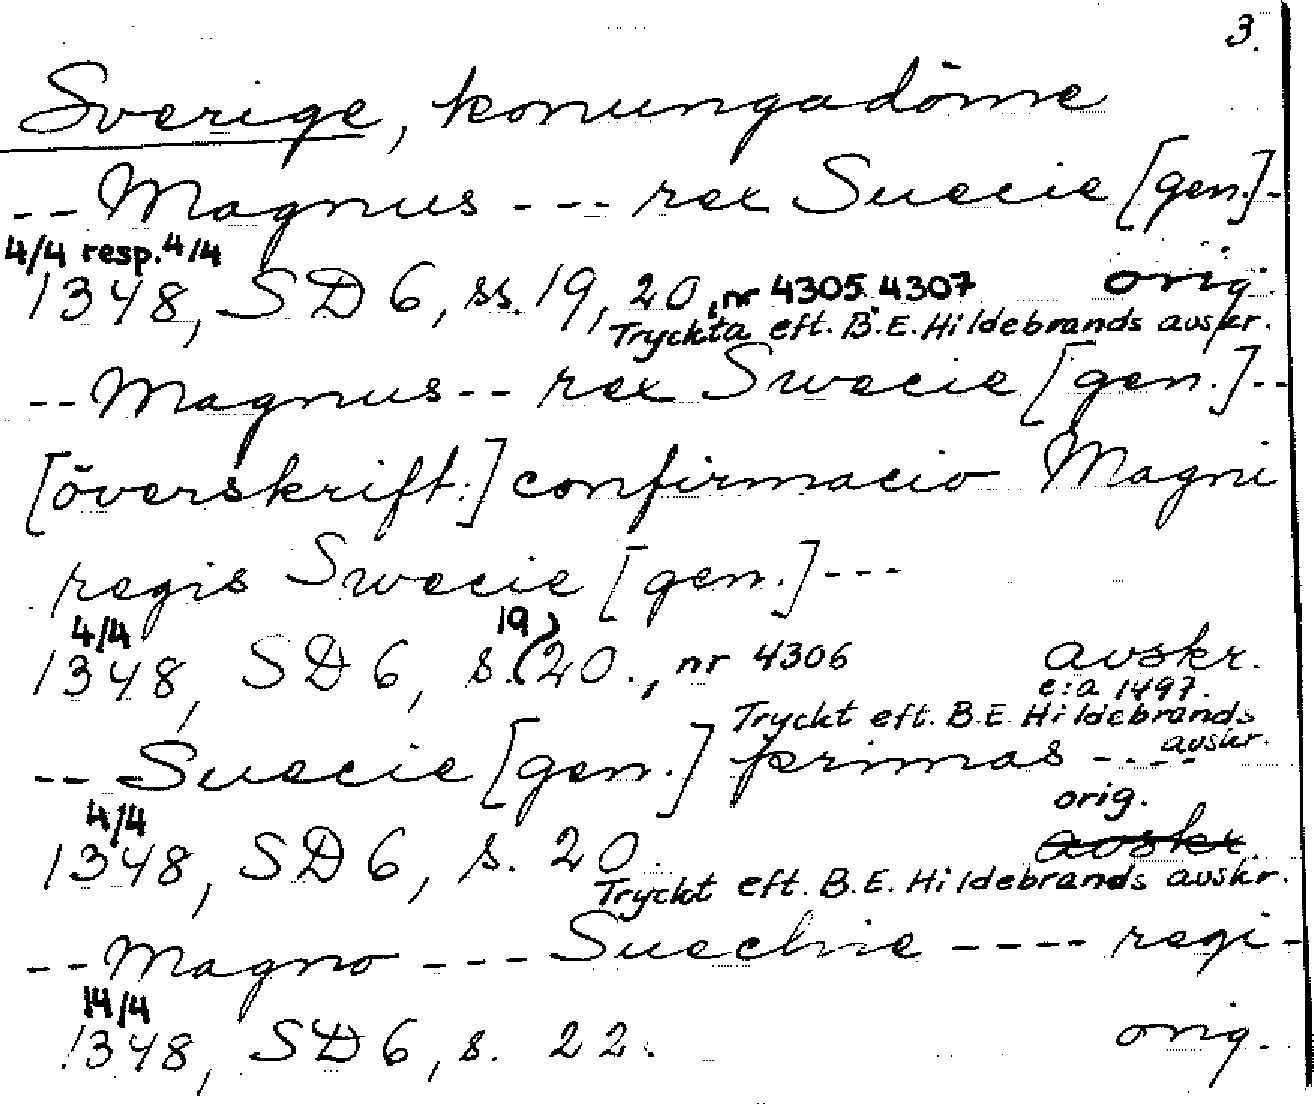 3.
Sverige, konungadöme
-- Magnus --- rex Suecie [gen.]-
4/4 resp. 4/4
1348, SD 6, ss. 19, 20, nr 4305. 4307 orig.
Tryckta eft. B.E. Hildebrands avskr.
-- Magnus -- rex Swecie [gen.]--
[överskrift:] confirmacio Magni
regis Swecie [gen.]---
4/4 19
1348, SD 6, s. (20., nr 4306 avskr.
c:a 1497.
Tryckt eft. B.E. Hildebrands
avskr.
-- Suecie [gen.] primas ----
4/4 orig.
1348, SD 6, s. 20. avskr.
Tryckt eft. B.E. Hildebrands avskr.
-- Magno --- Suechie ---- regi -
14/4
1348, SD 6, s. 22. orig.